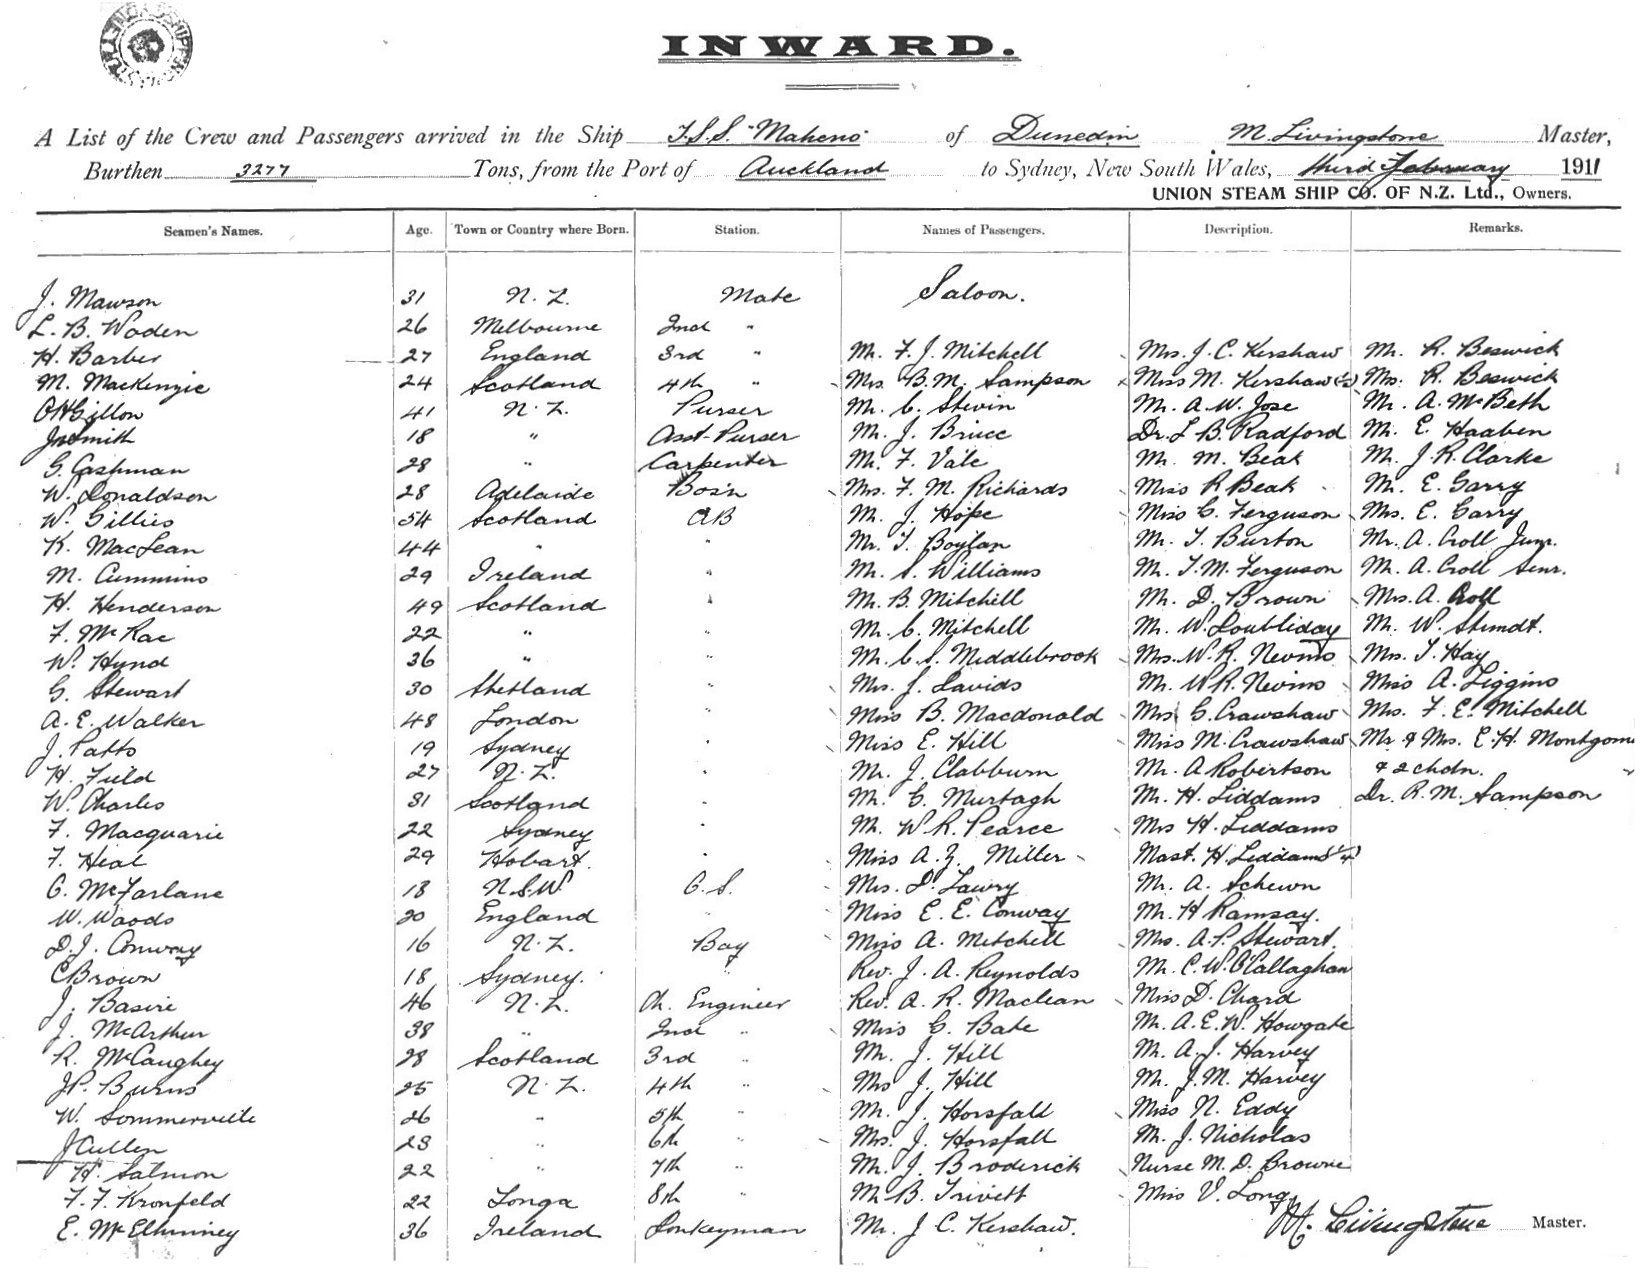 INWARD.
A List of the Crew and Passengers arrived in the Ship T.S.S. "Maheno" of Dunedin M. Livingstone Master,
Burthen 3277 Tons, from the Port of Auckland to Sydney, New South Wales, third February 1911
UNION STEAM SHIP CO. OF N.Z. Ltd., Owners.
Seamen's Names. Age. Town or Country where Born. Station. Names of Passengers. Description. Remarks.
J. Mawson 31 N.Z. Mate Saloon.
L. B. Woden 26 Melbourne 2nd "
H. Barber 27 England 3rd " Mr. F. J. Mitchell Mrs. J. C. Kershaw Mr. R. Beswick
M. MacKenzie 24 Scotland 4th " Mrs. B. M. Sampson Miss M. Kershaw Mrs. R. Beswick
Gillon 41 N.Z. Purser Mr. C. Stevin Mr. A. W. Jose Mr. A. McBeth
Jno Smith 18 " Asst. Purser Mr. J. Bruce Dr. L. B. Radford Mr. E. Haaben
G. Cashman 28 " Carpenter Mr. F. Vale Mr. M. Beak Mr. J. R. Clarke
W. Donaldson 28 Adelaide Bos'n Mrs. F. M. Richards Miss R Beak Mr. E. Garry
W. Gillies 54 Scotland AB Mr. J. Hope Miss C. Ferguson Mrs. E. Garry
K. MacLean 44 " " Mr. T. Boylan Mr. T. Burton Mr. A. Croll Junr.
M. Cummins 29 Ireland " Mr. S. Williams Mr. T. M. Ferguson Mr. A. Croll Senr.
H. Henderson 49 Scotland " Mr. B. Mitchell Mr. D. Brown Mrs. A. Croll
F. McRae 22 " " Mr. C. Mitchell Mr. W. Doubleday Mr. W. Stundt.
W. Hynd 36 " " Mr. C. S. Middlebrook Mrs. W. R. Nevins Mrs. T. Hay
G. Stewart 30 Shetland " Mrs. J. Davids Mr. W R. Nevins Miss A. Liggins
A. E. Walker 48 London " Miss B. Macdonald Mrs G. Crawshaw Mrs. F. E. Mitchell
J. Patts 19 Sydney " Miss E. Hill Miss M. Crawshaw Mr & Mrs. E. H. Montgom
H. Field 27 N.Z. " Mr. J. Clabburn Mr. A Robertson & 2 chdn.
W. Charles 31 Scotland " Mr. C. Murtagh Mr. H. Liddams Dr. R. M. Sampson
F. Macquarie 22 Sydney " Mr. W R. Pearce Mrs H. Liddams
F. Heal 29 Hobart. " Miss A. Z. Miller Mast. H. Liddams
G. McFarlane 18 N.S.W O.S. Mrs. D. Lawry Mr. A. Schewn
W. Woods 20 England " Miss E. E. Conway Mr. H Ramsay.
D. J. Conway 16 N.Z. Boy Miss A. Mitchell Mrs. A. P. Stewart.
C Brown 18 Sydney. Rev. J. A. Reynolds Mr. C. W. O'Callaghan
J. Basire 46 N.Z. Ch. Engineer Rev. A. R. Maclean Miss D. Chard
J. McArthur 38 " 2nd " Miss C. Bate Mr. A. E. W. Howgate
R. McCaughey 28 Scotland 3rd " Mr. J. Hill Mr. A. J. Harvey
J P. Burns 25 N.Z. 4th " Mrs J. Hill Mr. J. M. Harvey
W. Sommerville 26 " 5th " Mr. J. Horsfall Miss N. Eddy
J Cullen 23 " 6th " Mrs. J. Horsfall Mr. J. Nicholas
H. Salmon 22 " 7th " Mr. J. Broderick Nurse M. D. Browne
F. F. Kronfeld 22 Tonga 8th " Mr B. Trivett Miss V. Long
E. McElhinney 36 Ireland Donkeyman Mr. J C. Kershaw. M. Livingstone Master.